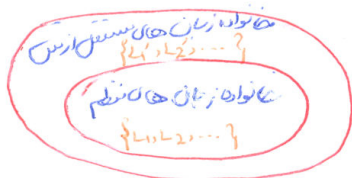 خانواده زبان های مستقل از متن
{L'1, L'2, ...}
خانواده زبان های منظم
{L1, L2, ...}